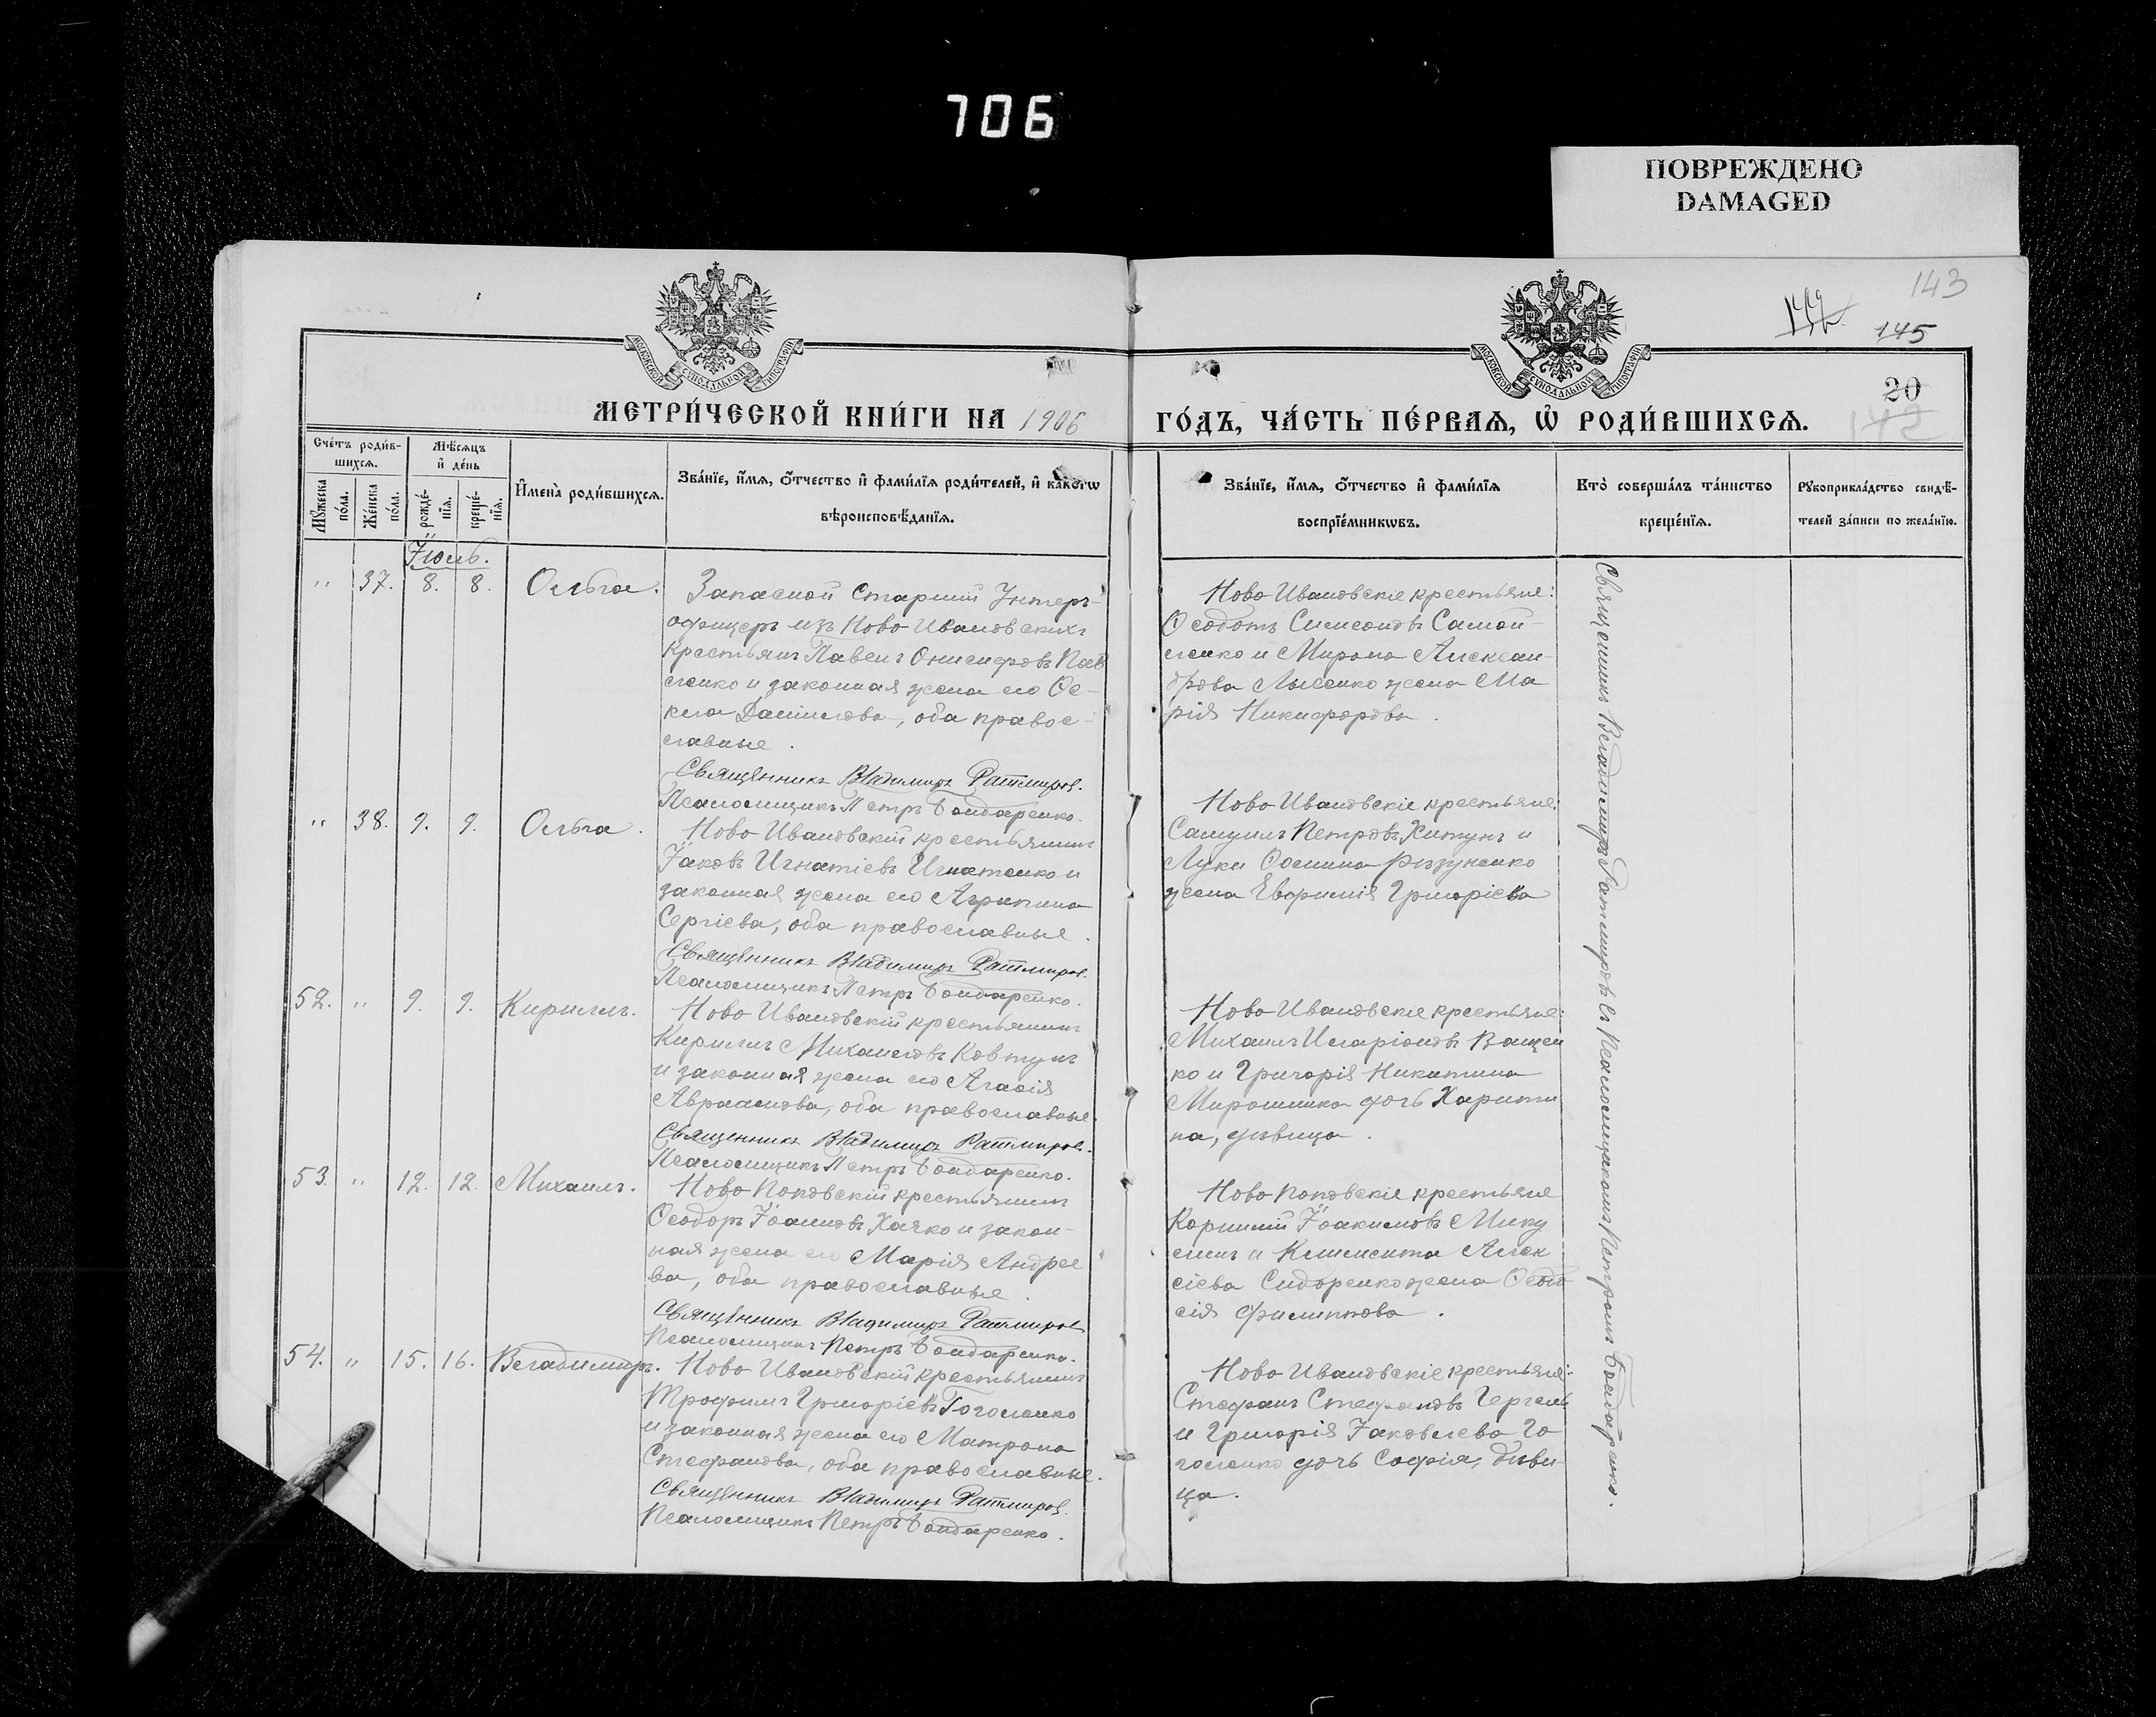 706
ПОВРЕЖДЕНО
DAMAGED
143
145
20
142
МОСКОВСКОЙ СѴНОДАЛЬНОЙ ТИПОГРАФІИ
МОСКОВСКОЙ СѴНОДАЛЬНОЙ ТИПОГРАФІИ
МЕТРИ́ЧЕСКОЙ КНИ́ГИ НА 1906
ГО́ДЪ, ЧА́СТЬ ПЕ́РВАѦ, Ѡ҆ РОДИ́ВШИХСѦ.
Сче́тъ роди́в-
шихсѧ.
Мѣ́сѧцъ
и҆ де́нь
Мꙋ́жеска
по́ла.
Же́нска
по́ла.
рожде́-
нїѧ.
креще́-
нїѧ.
И҆мена̀ роди́вшихсѧ.
Зва́нїе, и҆́мѧ, ѻ҆́тчество и҆ фами́лїѧ роди́телей, и҆ како́гѡ
вѣроисповѣ́данїѧ.
Зва́нїе, и҆́мѧ, ѻ҆́тчество и҆ фами́лїѧ
воспрїе́мникѡвъ.
Кто̀ соверша́лъ та́инство
креще́нїѧ.
Рꙋкоприкла́дство свидѣ́-
телей за́писи по жела́нїю.
Іюль.
" 37. 8. 8. Ольга.
Запасной Старшій Унтеръ-
офицеръ изъ Ново Ивановскихъ
крестьянъ Павелъ Онисифровъ Пав
ленко и законная жена его Ѳе-
кла Даніилова, оба правос-
лавные.
Священникъ Владимиръ Ратмировъ.
Псаломщикъ Петръ Бондаренко.
Ново Ивановскіе крестьяне:
Ѳеодотъ Симеоновъ Самой-
ленко и Мирона Алексан-
дрова Лысенко жена Ма
рія Никифорова.
" 38. 9. 9. Ольга.
Ново Ивановскій крестьянинъ
Іаковъ Игнатіевъ Игнатенко и
законная жена его Агрипина
Сергіева, оба православные.
Священникъ Владимиръ Ратмировъ.
Псаломщикъ Петръ Бондаренко.
Ново Ивановскіе крестьяне:
Самуилъ Петровъ Хитунъ и
Луки Ѳомина
жена Евфимія Григоріева
52. " 9. 9. Кириллъ.
Ново Ивановскій крестьянинъ
Кириллъ Михаиловъ Ковтунъ
и законная жена его Агафія
Авраамова, оба православные.
Священникъ Владимиръ Ратмировъ.
Псаломщикъ Петръ Бондаренко.
Ново Ивановскіе крестьяне:
Михаилъ Иларіоновъ Ващен
ко и Григорія Никитина
Мирошника дочь Харити
на, дѣвица.
53. " 12. 12. Михаилъ.
Ново Поповскій крестьянинъ
Ѳеодоръ Іоанновъ Хачко и закон-
ная жена его Марія Андрее
ва, оба православные.
Священникъ Владимиръ Ратмировъ
Псаломщикъ Петръ Бондаренко.
Ново Поповскіе крестьяне
Корнилій Іоакимовъ Мику
линъ и Климента Алек
сіева Сидоренко жена Ѳеодо
сія Филиппова.
54. " 15. 16. Владимиръ.
Ново Ивановскій крестьянинъ
Трофимъ Григоріевъ Гоголенко
и законная жена его Матрона
Стефанова, оба православные.
Священникъ Владимиръ Ратмировъ.
Псаломщикъ Петръ Бондаренко.
Ново Ивановскіе крестьяне:
Стефанъ Стефановъ
и Григорія Іаковлева Го
голенко дочь Софія, дѣви-
ца.
Священникъ Владимиръ Ратмировъ съ Псаломщикомъ Петромъ Бондаренко.